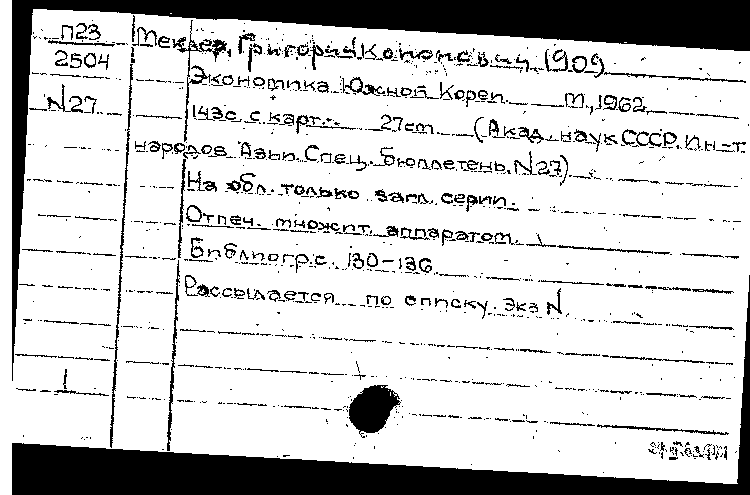 П23
2504
N27
Меклер, Григорий Кононович, 1909
Экономика Южной Кореи. М., 1962
143с. с карт. 27см (Акад. наук СССР. Ин-т.
народов Азии. Спец. бюллетень. N27)
На обл. только загл. серии.
Отпеч. множит. аппаратом.
Библиогр. с. 130-136
Рассылается по списку. Экз N
1